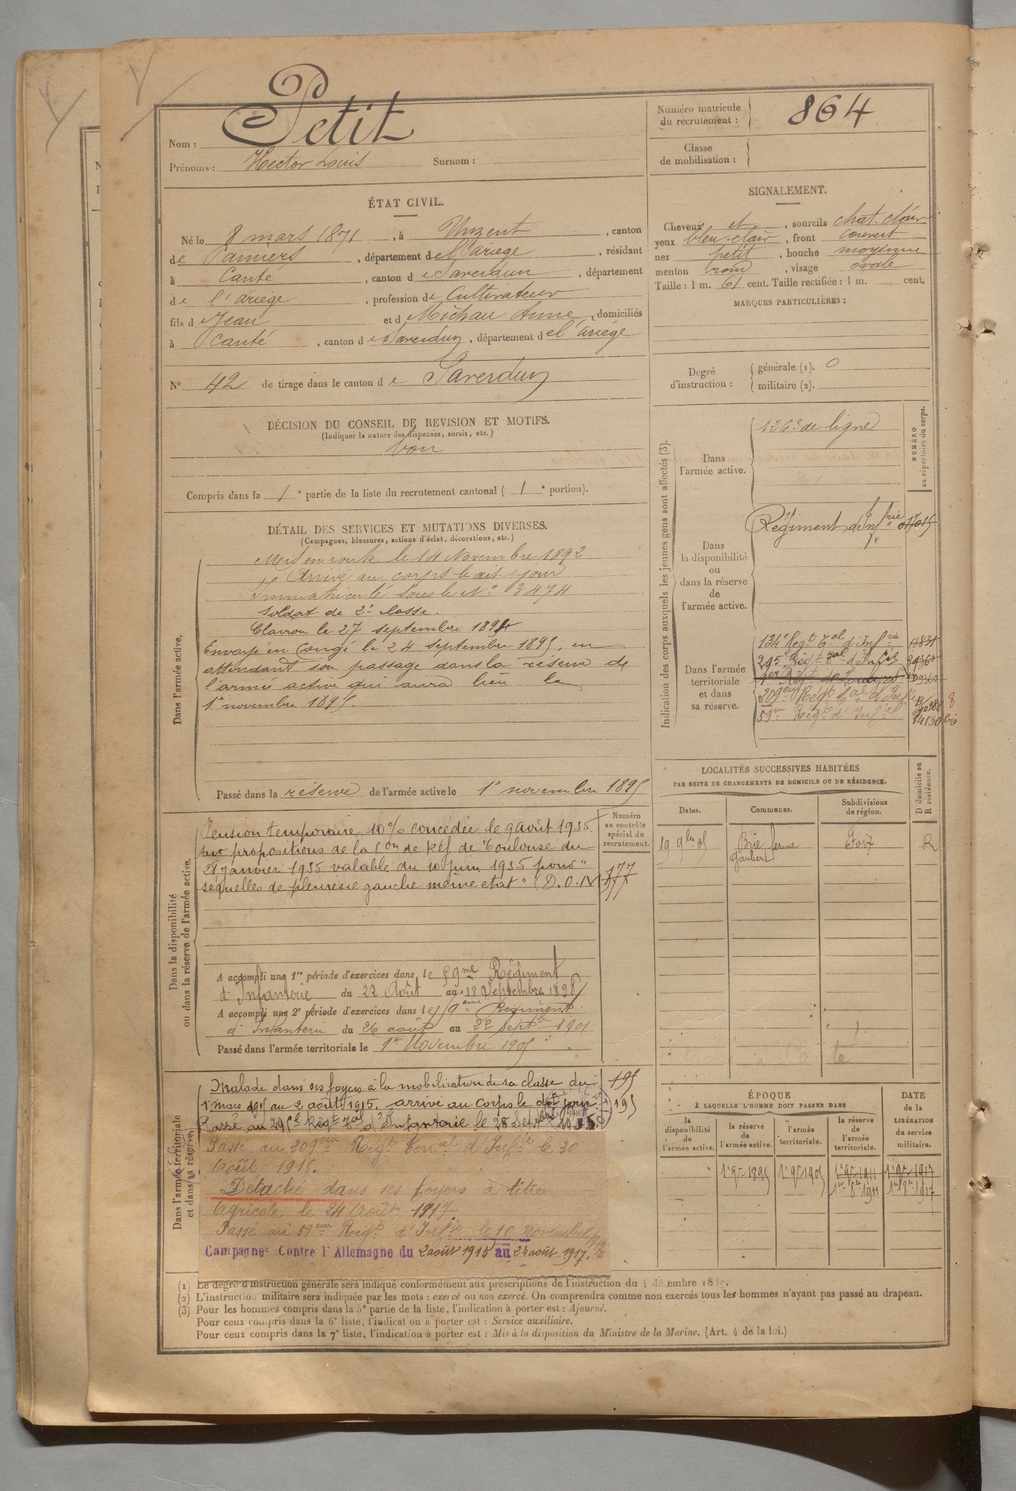 Nom : Petit
Prénoms : Hector Louis Surnom :
Numéro matricule du recrutement : 864
Classe de mobilisation :
ÉTAT CIVIL.
Né le 8 mars 1871, à Unzent, canton
de Pamiers, département de l'Ariège, résidant
à Canté, canton de Saverdun, département
de l'Ariège, profession de Cultivateur
fils de Jean et de Michau Anne, domiciliés
à Canté, canton de Saverdun, département de l'Ariège
N° 42 de tirage dans le canton de Saverdun
SIGNALEMENT.
Cheveux et, sourcils chat. clair
yeux bleu-clair, front couvert
nez petit, bouche moyenne
menton rond, visage ovale
Taille : 1 m. 61 cent. Taille rectifiée : 1 m. cent.
MARQUES PARTICULIÈRES :
Degré d'instruction : générale (1). 0
militaire (2).
DÉCISION DU CONSEIL DE REVISION ET MOTIFS.
(Indiquer la nature des dispenses, sursis, etc.)
bon
Compris dans la 1e partie de la liste du recrutement cantonal (1e portion).
DÉTAIL DES SERVICES ET MUTATIONS DIVERSES.
(Campagnes, blessures, actions d'éclat, décorations, etc.)
Dans l'armée active.
Mis en route le 14 Novembre 1892
Arrivé au corps le dit jour
Immatriculé sous le N° 3474
Soldat de 2e classe.
Clairon le 27 septembre 1894
Envoyé en congé le 24 septembre 1895, en
attendant son passage dans la réserve de
l'armée active qui aura lieu le
1er novembre 1895.
Passé dans la réserve de l'armée active le 1er novembre 1895
Indication des corps auxquels les jeunes gens sont affectés (3).
NUMÉRO au répertoire du corps.
Dans l'armée active.
126e de ligne
Dans la disponibilité ou dans la réserve de l'armée active.
Régiment d'Infrie
Dans l'armée territoriale et dans sa réserve.
134e Regt Tal d'Infrie
295e Regt Tal d'Infie
209eme Regt Tal d'Infie
59eme Regt d'Infie
Dans la disponibilité ou dans la réserve de l'armée active.
Numéro au contrôle spécial du recrutement.
Pension temporaire 10% concédée le 9 août 1935
sur propositions de la Con de Réf de Toulouse du
28 janvier 1935 valable du 10 juin 1935 pour "
sequelles de pleurésie gauche même état" (D.O.N
177
A accompli une 1re période d'exercices dans le 59me Régiment
d'Infanterie du 22 Août au 18 Septembre 1898
A accompli une 2e période d'exercices dans le 59eme Régiment
d'Infanterie du 26 août au 22 septbre 1901
Passé dans l'armée territoriale le 1er Novembre 1905
LOCALITÉS SUCCESSIVES HABITÉES
PAR SUITE DE CHANGEMENTS DE DOMICILE OU DE RÉSIDENCE.
Dates. Communes. Subdivisions de région. D domicile ou R résidence.
Foix R
Dans l'armée territoriale et dans sa réserve.
Malade dans ses foyers à la mobilisation de sa classe du
1er mars 1915 au 2 août 1915. arrivé au corps le dit jour
Passé au 295e Régt Tal d'Infanterie le 28 Septbre 1915
Passé au 209eme Régt Terral d'Infie le 30
Août 1916.
Détaché dans ses foyers à titre
Agricole le 24 Août 1917.
Passé au 59eme Régt d'Infie le 10 novembre
Campagnes Contre l'Allemagne du 2 août 1915 au 24 août 1917.
195
ÉPOQUE
À LAQUELLE L'HOMME DOIT PASSER DANS
la disponibilité de l'armée active. la réserve de l'armée active. l'armée territoriale. la réserve de l'armée territoriale.
DATE de la LIBÉRATION du service militaire.
1er 9bre 1895 1er 9bre 1905 1er 9bre 1911 1er 9bre 1917
1er 8bre 1911 1er 8bre 1917
(1) Le degré d'instruction générale sera indiqué conformément aux prescriptions de l'instruction du 4 décembre 1889.
(2) L'instruction militaire sera indiquée par les mots : exercé ou non exercé. On comprendra comme non exercés tous les hommes n'ayant pas passé au drapeau.
(3) Pour les hommes compris dans la 5e partie de la liste, l'indication à porter est : Ajourné.
Pour ceux compris dans la 6e liste, l'indication à porter est : Service auxiliaire.
Pour ceux compris dans la 7e liste, l'indication à porter est : Mis à la disposition du Ministre de la Marine. (Art. 4 de la loi.)